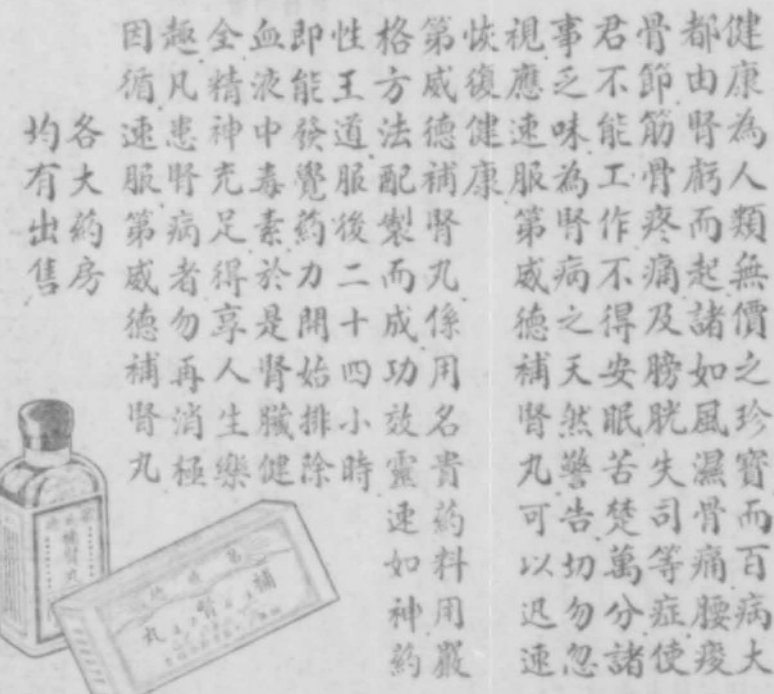 健康為人類無價之珍寶而百病大
都由腎虧而起諸如風濕骨痛腰痠
骨節筋骨疼痛及膀胱失司等症使
君不能工作不得安眠苦楚萬分諸
事乏味為腎病之天然警告切勿忽
視應速服第威德補腎丸可以迅速
恢復健康
第威德補腎丸係用名貴药料用嚴
格方法配製而成功效靈速如神药
性王道服後二十四小時
即能發覺药力開始排除
血液中毒素於是腎臟健
全精神充足得享人生樂
趣凡患腎病者勿再消極
因循速服第威德補腎丸
各大药房
均有出售
補腎丸
補腎丸